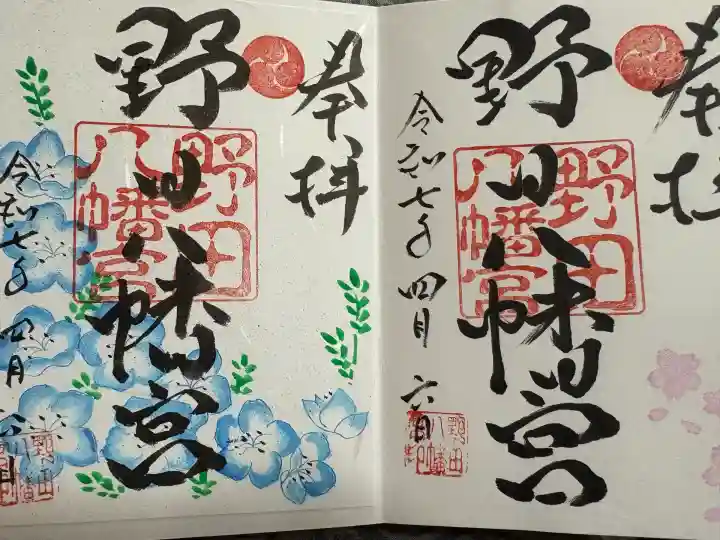 奉拝
野田八幡宮
野田八幡宮
令和七年四月六日
奉拝
野田八幡宮
野田八幡宮
令和七年四月六日
野田八幡宮